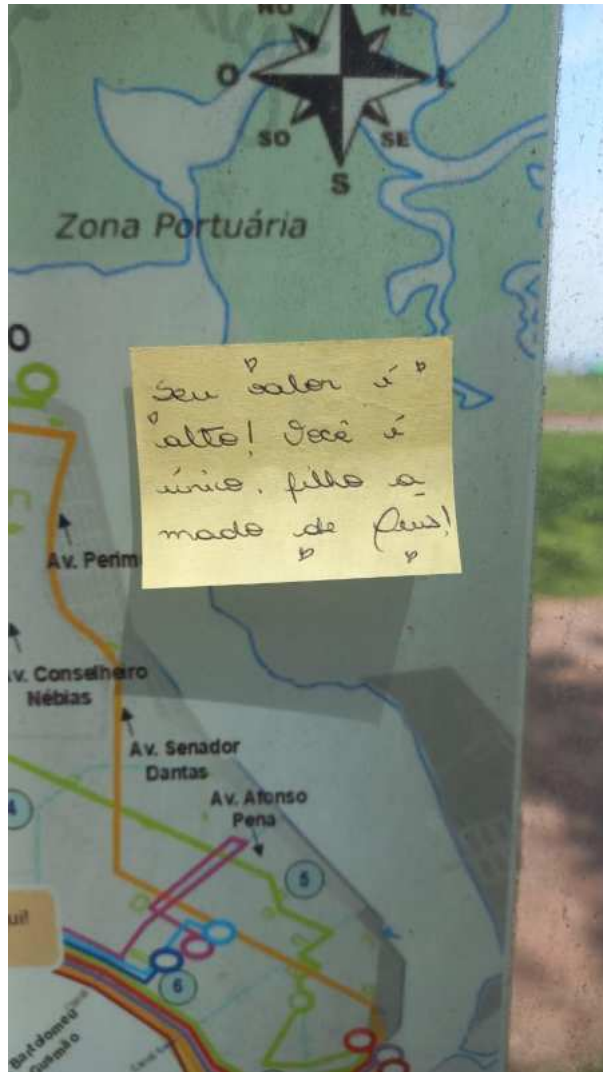 NO
NE
O
L
SO
SE
S
Zona Portuária
O
Seu valor é
alto! Você é
único, filho a
mado de Deus!
Av. Conselheiro
Nébias
Av. Senador
Dantas
Av. Afonso
Pena
4
5
ui!
6
Bartolomeu
Gusmão